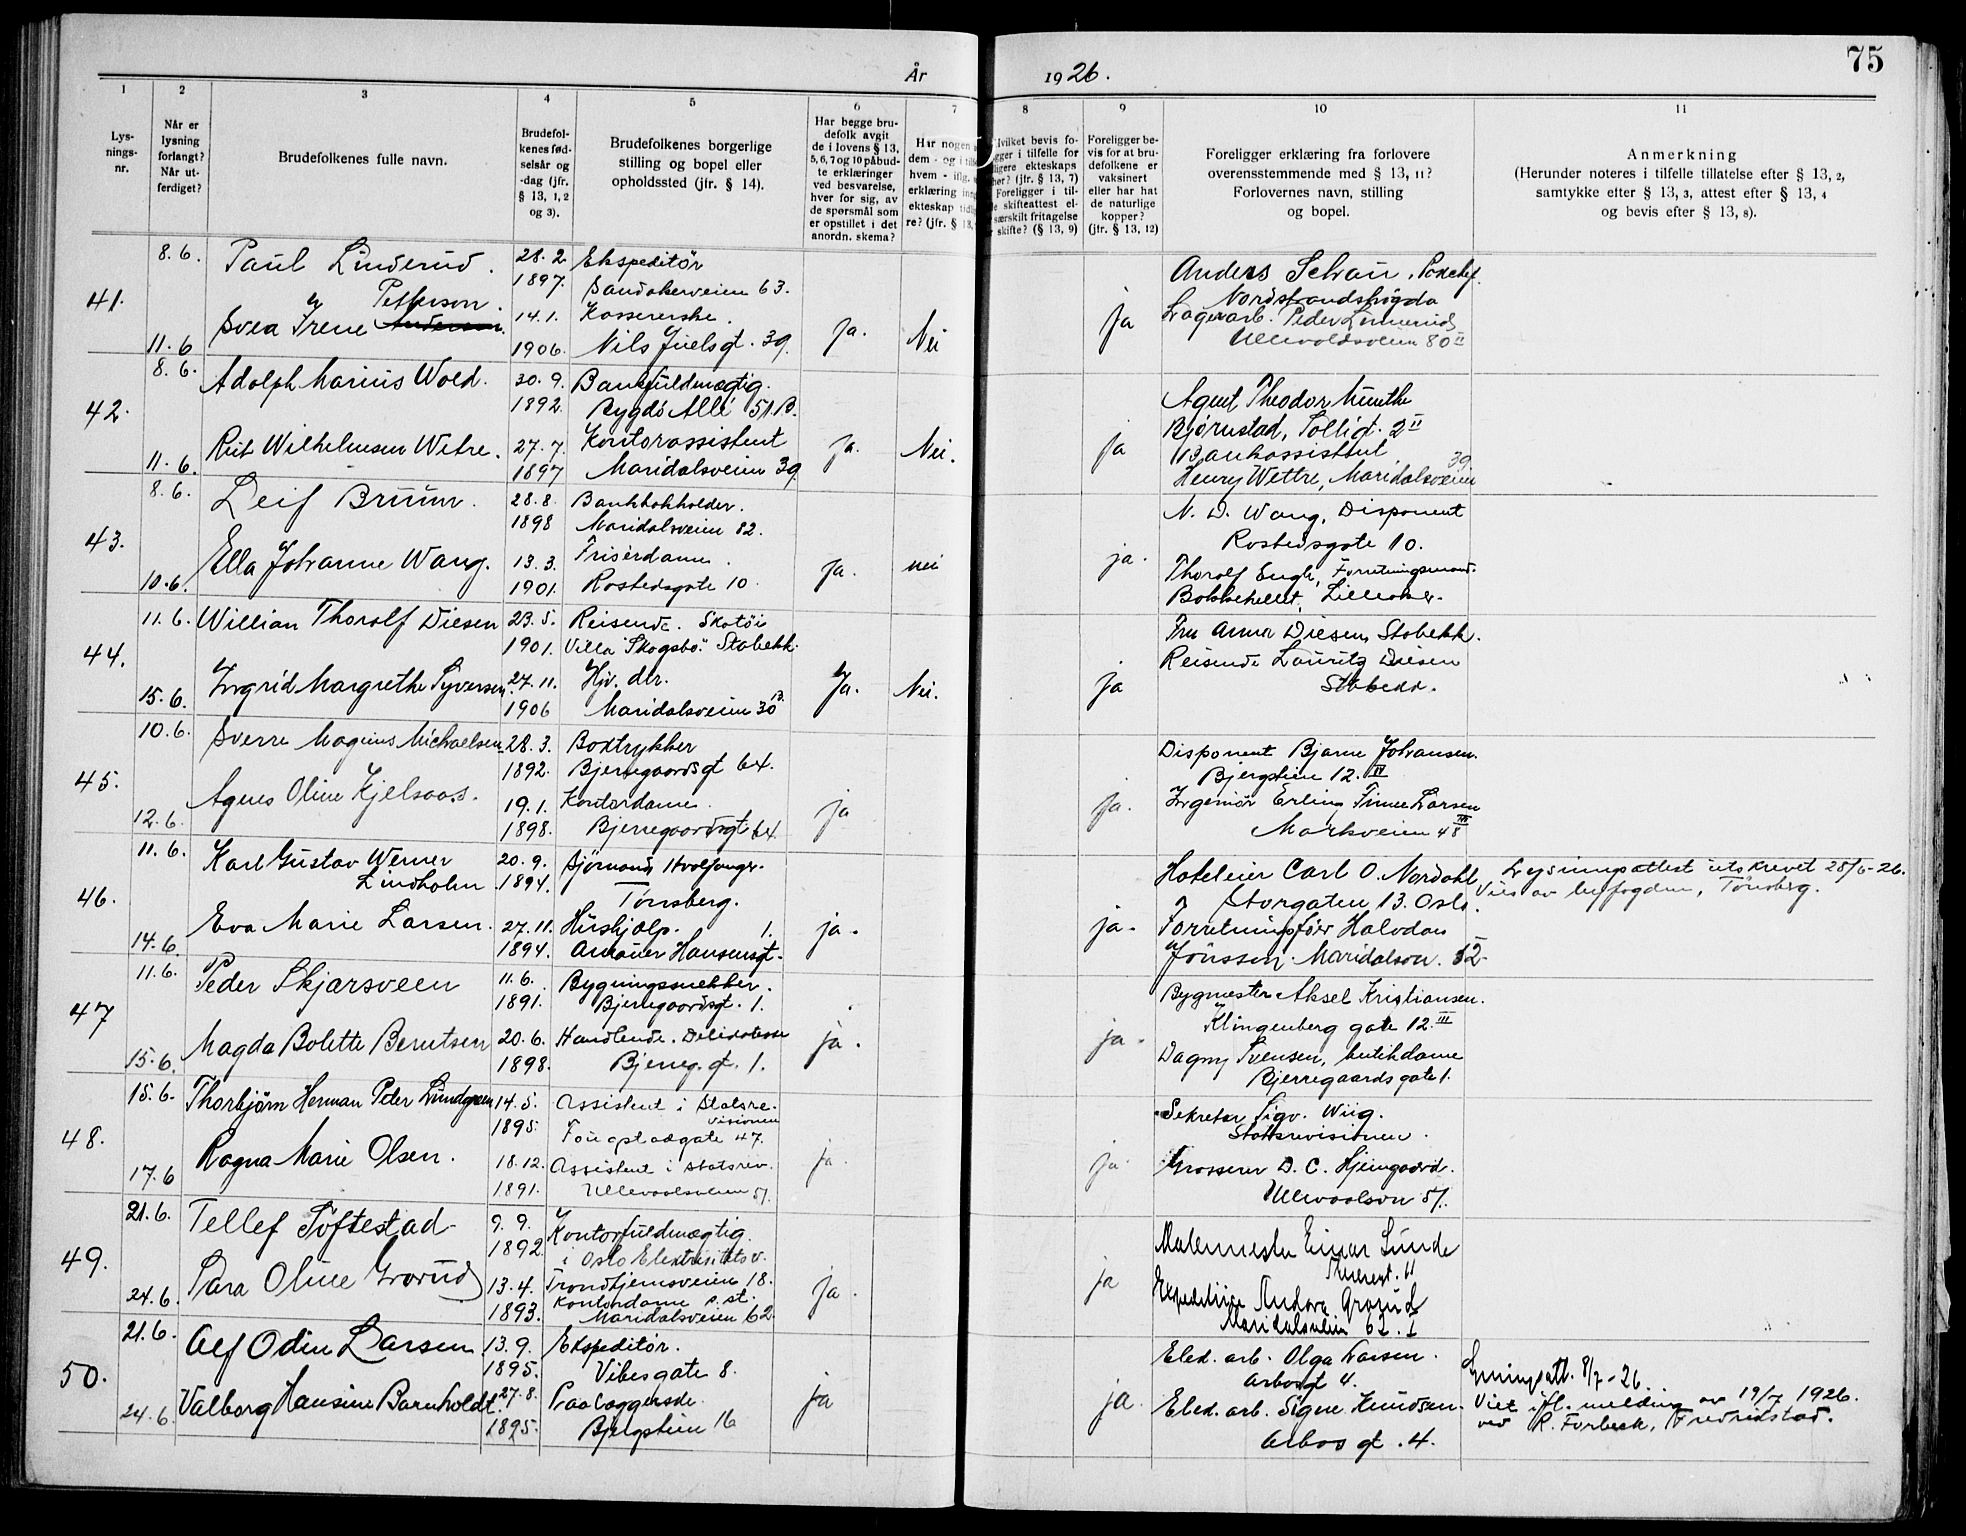 75
År 1926.
1 2 3 4 5 6 7 8 9 10 11
Lys-
nings-
nr.
Når er
lysning
forlangt?
Når ut-
ferdiget?
Brudefolkenes fulle navn.
Brudefol-
kenes fød-
selsår og
-dag (jfr.
§ 13, 1, 2
og 3).
Brudefolkenes borgerlige
stilling og bopel eller
opholdssted (jfr. § 14).
Har begge bru-
defolk avgit
de i lovens § 13,
5, 6, 7 og 10 påbud-
te erklæringer
ved besvarelse,
hver for sig, av
de spørsmål som
er opstillet i det
anordn. skema?
Har nogen
dem - og i
hvem - iflg.
erklæring
ekteskap
re? (jfr. § 13,
Hvilket bevis fo-
gger i tilfelle for
ligere ekteskaps
her? (jfr. § 13, 7)
Foreligger i til-
e skifteattest el-
særskilt fritagelse
skifte? (§ 13, 9)
Foreligger be-
vis for at bru-
defolkene er
vaksinert
eller har hat
de naturlige
kopper?
(jfr. § 13, 12)
Foreligger erklæring fra forlovere
overensstemmende med § 13, 11?
Forlovernes navn, stilling
og bopel.
Anmerkning
(Herunder noteres i tilfelle tillatelse efter § 13, 2,
samtykke efter § 13, 3, attest efter § 13, 4
og bevis efter § 13, 8).
41. 8.6. Paul Linderud. 28.2 1897. Ekspeditør
Sandakerveien 63.
11.6 Svea Irene Anderson Petterson. 14.1. 1906. Kassererske.
Nils Juelsgt. 39. Ja. Nei ja
Anders Schau,
Nordstrandshøgda
Lagerarb. Peder Linnerud
Ullevoldsveien 80 II
42. 8.6. Adolph Marius Wold. 30.9. 1892. Bankfuldmægtig.
Bygdö Allé 51.B.
11.6. Rut Wilhelmsen Wetre. 27.7. 1897 Kontorassistent
Maridalsveien 39. Ja. Nei. ja
Agent Theodor Munthe
Bjørnstad, Tolligt. 2 II
Bankassistent
Henry Wettre, Maridalsveien 39
43. 8.6. Leif Bruun. 28.8. 1898 Bankbokholder.
Maridalsveien 82.
10.6. Ella Johanne Wang. 13.3. 1901. Friserdame.
Rostedsgate 10. Ja. nei ja.
N. D. Wang, Disponent
Rostedsgate 10.
Thorolf Engh, Forretningsmand.
Lilleaker.
44. 11.6. Willian Thorolf Diesen 23.5. 1901. Reisende. Skotøi
Villa "Skogsbo" Stabekk.
15.6. Ingrid Margrethe Syversen. 27.11. 1906 Hjv. dtr.
Maridalsveien 30 B. Ja. Nei. ja
Fru Anna Diesen, Stabekk.
Reisende Lauritz Diesen
Stabekk.
45. 10.6. Sverre Magnus Michaelsen 28.3. 1892. Boktrykker
Bjerregaardsgt 64.
12.6. Agnes Oline Kjelsaas. 19.1. 1898. Kontordame.
Bjerregaardsgt 64 ja ja.
Disponent Bjarne Johansen.
Bjergstien 12. IV
Ingeniør Erling Finne Larsen
Markveien 48 III
46. 11.6. Karl Gustav Werner
Lindholm 20.9. 1894. Sjömand, Hvalfanger.
Tønsberg.
14.6. Eva Marie Larsen. 27.11. 1894. Hushjælp.
Amauer Hansensgt. 1. ja. ja.
Hoteleier Carl O. Nordahl
Storgaten 13. Oslo.
Forretningsfører Halvdan
Jönsson. Maridalsvn. 12
Lysningsattest utskrevet 28/6-26.
Viet av byfogden, Tønsberg.
47 11.6. Peder Skjarsveen 11.6. 1891. Bygningssnekker.
Bjerregaardsgt. 1.
15.6. Magda Bolette Berntsen 20.6. 1898. Handlende. Delikatesse
Bjerreg. gt. 1. ja. ja.
Bygmester Aksel Kristiansen.
Klingenberg gate 12. III
Dagny Svensen, butikdame
Bjerregaards gate 1.
48. 15.6. Thorbjörn Herman Peter Lundgreen 14.5. 1895. Assistent i Statsre-
visionen
Fougstadgate 47.
17.6 Ragna Marie Olsen. 18.12. 1891. Assistent i statsrev.
Ullevaalsveien 51. ja ja.
Sekretær Sigv. Wiig.
Statsrevisionen.
Grosserer D. C. Hjemgaard.
Ullevaalsvn 51.
49. 21.6. Tellef Töftestad 9.9. 1892. Kontorfuldmægtig.
i Oslo Elektricitetsv.
Trondhjemsveien 18.
24.6. Sara Oline Grorud 13.4. 1893. Kontordame s. st.
Maridalsveien 62. ja. ja
Malermester Einar Lunde
Theresgt. 11
Andora Grorud
Maridalsveien 62. I
50. 21.6. Alf Odin Larsen 13.9. 1895. Ekspeditør.
Vibesgate 8.
24.6. Valborg Hansine Barnholdt. 27.8. 1895. Paalæggerske.
Bjergstien 16 ja ja.
Eled. arb. Olga Larsen.
Arbosgt 4.
Eled. arb. Signe Knudsen.
Arbosgt. 4.
Lysningsatt. 8/7-26.
Viet ifl. melding av 19/7 1926.
ved R. Forbech, Fredrikstad.